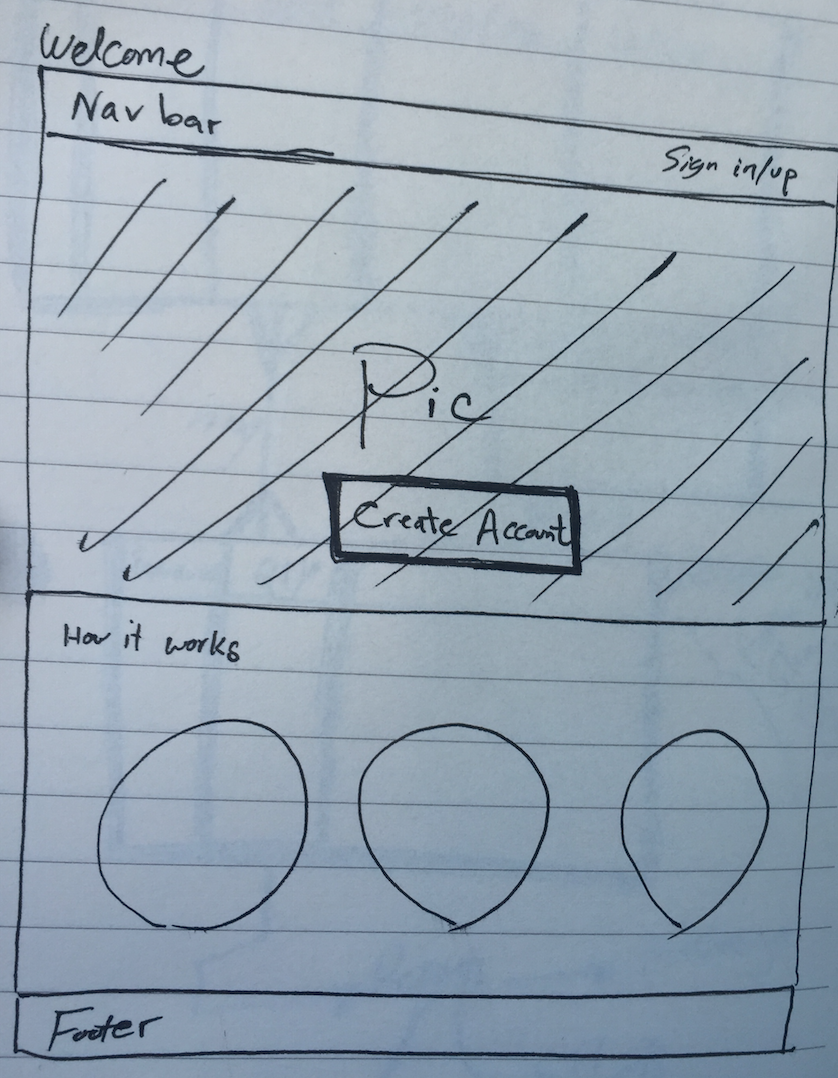 Welcome
Nav bar
Sign in/up
Pic
Create Account
How it works
Footer